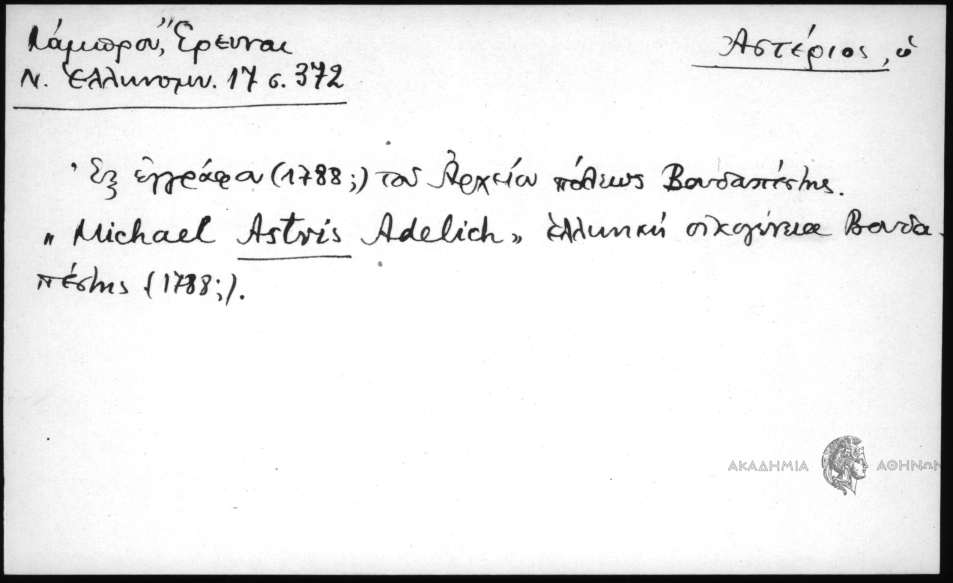 Λάμπρου, Ἔρευναι
Ἀστέριος, ὁ
Ν. Ἑλληνομν. 17 σ. 372
Ἐξ ἐγγράφου (1788;) τοῦ Ἀρχείου πόλεως Βουδαπέστης.
„ Michael Astris Adelich „ ἑλληνική οἰκογένεια Βουδα-
πέστης (1788;).
ΑΚΑΔΗΜΙΑ ΑΘΗΝΩΝ